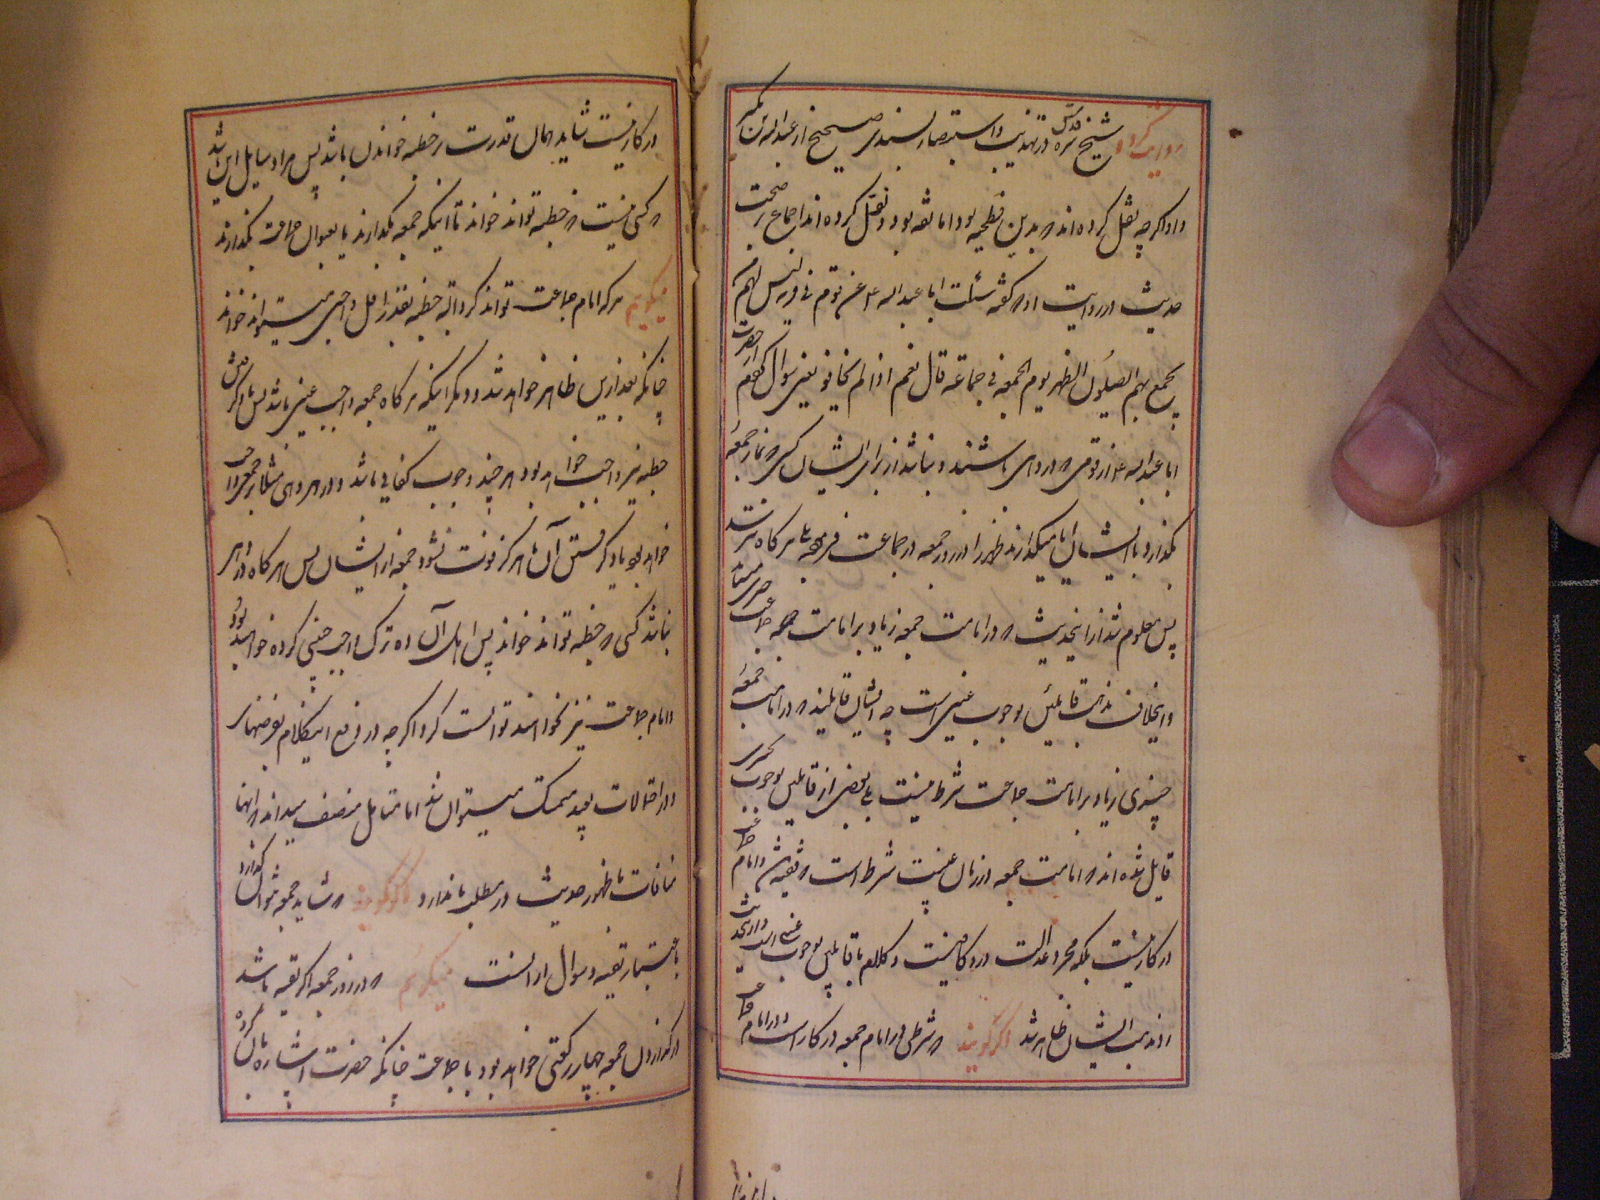 روایت کرده شیخ قدس سره در تهذیب و استبصار بسندی صحیح از عبدالله بن بکیر
و او اگرچه نقل کرده‌اند که بد بن فطحیه بود اما ثقه بود و نقل کرده‌اند اجماع بر صحت
حدیث او روایت او که گفته سئلت ابا عبدالله ع عن قوم فی قریه لیس لهم من
یجمع بهم ایصلون الظهر یوم الجمعه فی جماعه قال نعم اذا لم یخافوا یعنی سؤال کردم از حضرت
ابا عبدالله ع از قومی که در دهی باشند و نباشد از برای ایشان کسی که نماز جمعه
بگذارد با ایشان ایا میگذارند ظهر را در روز جمعه در جماعت فرمود بلی هرگاه نترسند
پس معلوم شد از این حدیث که در امامت جمعه زیاد بر امامت جماعت چیزی هست
و اینخلاف مذهب قائلین بوجوب عینی است چه ایشان قایلند که در امامت جمعه
چیزی زیاد بر امامت جماعت شرط نیست بلی بعضی از قایلین بوجوب تخییری
قایل شده‌اند که امامت جمعه در زمان غیبت شرط است که فقیه باشد و امام جماعت
در کار نیست بلکه مجرد عدالت در او کافیست و کلام با قایلین بوجوب عینی است و از این حدیث
رد مذهب ایشان ظاهر شد اگر گویند که شرطی که در امام جمعه در کار است و در امام جماعت
در کار نیست شاید همان قدرت بر خطبه خواندن باشد پس مراد سایل این باشد
که کسی نیست که خطبه تواند خواند تا اینکه جمعه بگذارند یا بعنوان جماعت بگذارند
میگویم هر که امام جماعت تواند کرد البته خطبه بقدر اقل واجبی میتواند خواند
چنانکه بعد از این ظاهر خواهد شد و دیگر اینکه هرگاه جمعه واجب عینی باشد پس یاد گرفتن
خطبه نیز واجب خواهد بود هر چند وجوب کفایی باشد و در هر دهی مثلا بر جمعی واجب
خواهد بود یاد گرفتن آن تا هرگز فوت نشود جمعه از ایشان پس هرگاه در دهی
نباشد کسی که خطبه تواند خواند پس اهل آن ده ترک واجب عینی کرده خواهند بود
و امام جماعت نیز نخواهند توانست کرد اگرچه در دفع اینکلام بفرضهای
و احتمالات بعید متمسک میتوان شد اما متامل منصف میداند که اینها
منافات با ظهور حدیث در مطلب ما ندارد اگر گویند که شاید جمعه نتوان گذارد
باعتبار تقیه و سؤال از آنست میگویم که در روز جمعه اگر تقیه باشد
در گذاردن جمعه چهار رکعتی خواهد بود با جماعت چنانکه حضرت اشاره بآن کرده